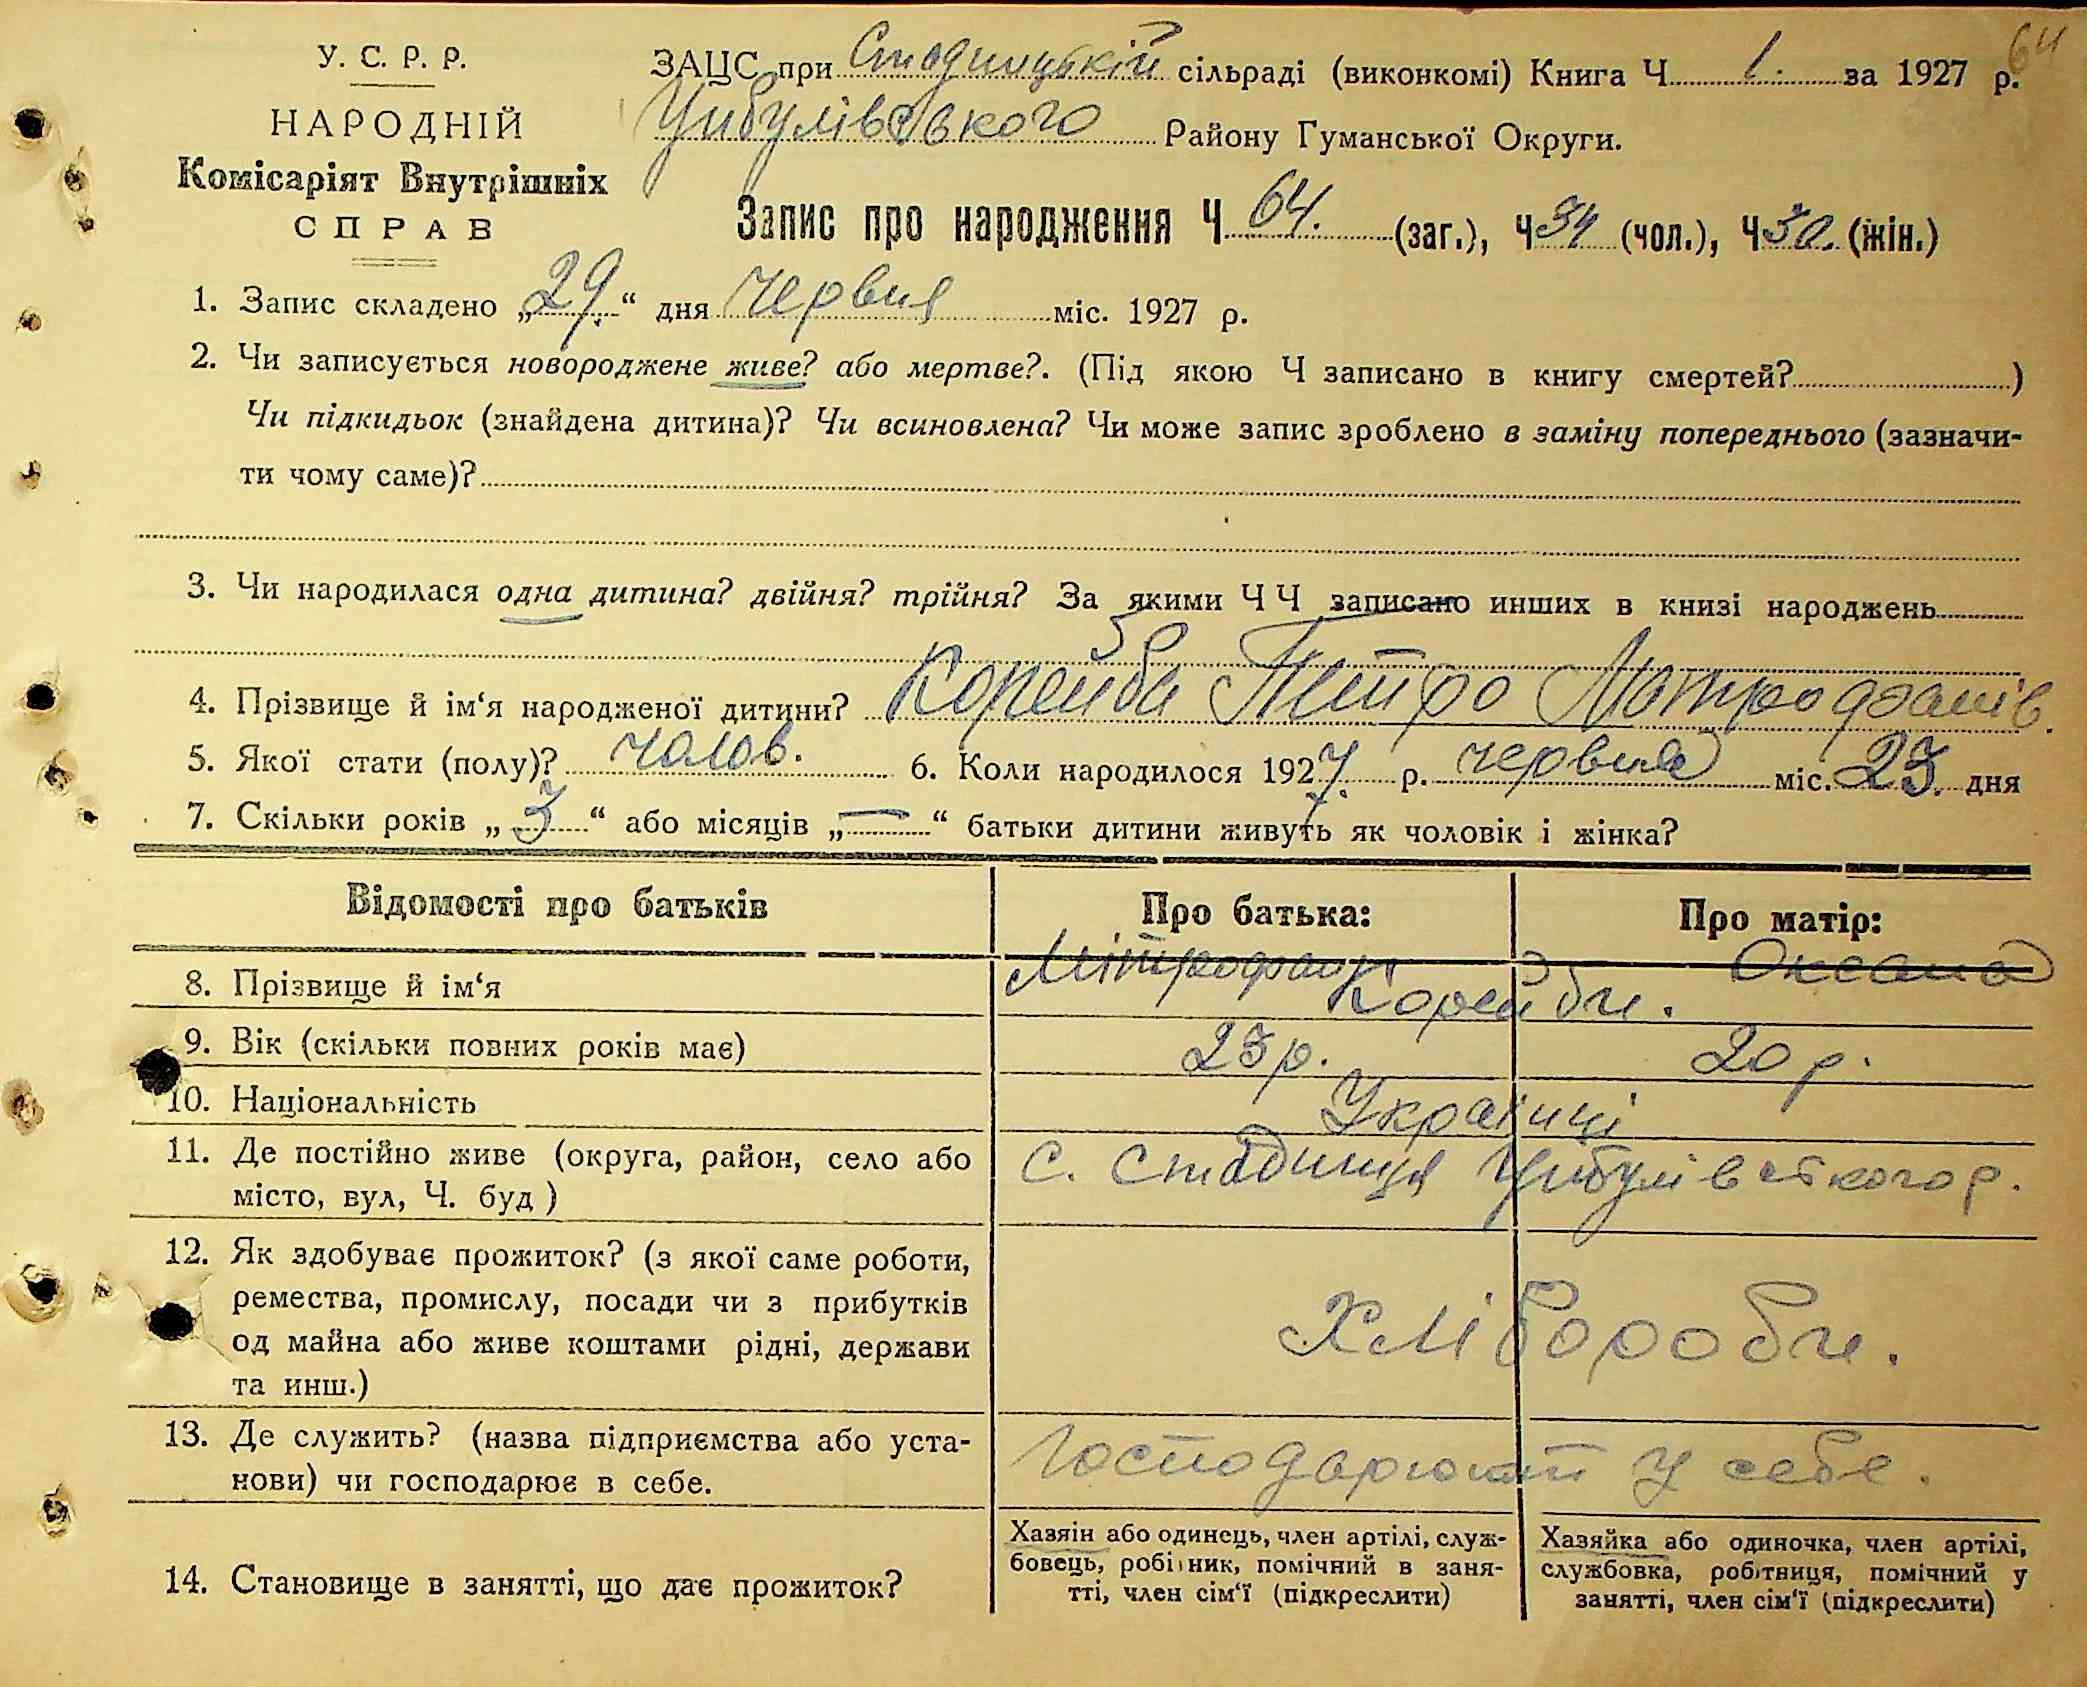 64
У. С. Р. Р.
НАРОДНІЙ
Комісаріят Внутрішніх
СПРАВ
ЗАЦС при Стадницькій сільраді (виконкомі) Книга Ч 1. за 1927 р.
Цибулівського Району Гуманської Округи.
Запис про народження Ч 64. (заг.), Ч 34 (чол.), Ч 30. (жін.)
1. Запис складено „29.“ дня червня міс. 1927 р.
2. Чи записується новороджене живе? або мертве?. (Під якою Ч записано в книгу смертей? )
Чи підкидьок (знайдена дитина)? Чи всиновлена? Чи може запис зроблено в заміну попереднього (зазначи-
ти чому саме)?
3. Чи народилася одна дитина? двійня? трійня? За якими Ч Ч записано инших в книзі народжень
4. Прізвище й ім‘я народженої дитини? Корейба Петро Мотрофанів.
5. Якої стати (полу)? чолов. 6. Коли народилося 1927. р. червня міс. 23. дня
7. Скільки років „3“ або місяців „—“ батьки дитини живуть як чоловік і жінка?
Відомості про батьків
Про батька:
Про матір:
8. Прізвище й ім‘я
Мітрофан Оксана
Корейби.
9. Вік (скільки повних років має) 23 р. 20 р.
10. Національність Українці
11. Де постійно живе (округа, район, село або
місто, вул, Ч. буд )
с. Стадниця Цибулівського р.
12. Як здобуває прожиток? (з якої саме роботи,
ремества, промислу, посади чи з прибутків
од майна або живе коштами рідні, держави
та инш.)
Хлібороби.
13. Де служить? (назва підприємства або уста-
нови) чи господарює в себе.
Господарюют у себе.
14. Становище в занятті, що дає прожиток?
Хазяін або одинець, член артілі, служ-
бовець, робітник, помічний в заня-
тті, член сім‘ї (підкреслити)
Хазяйка або одиночка, член артілі,
службовка, робітниця, помічний у
занятті, член сім‘ї (підкреслити)